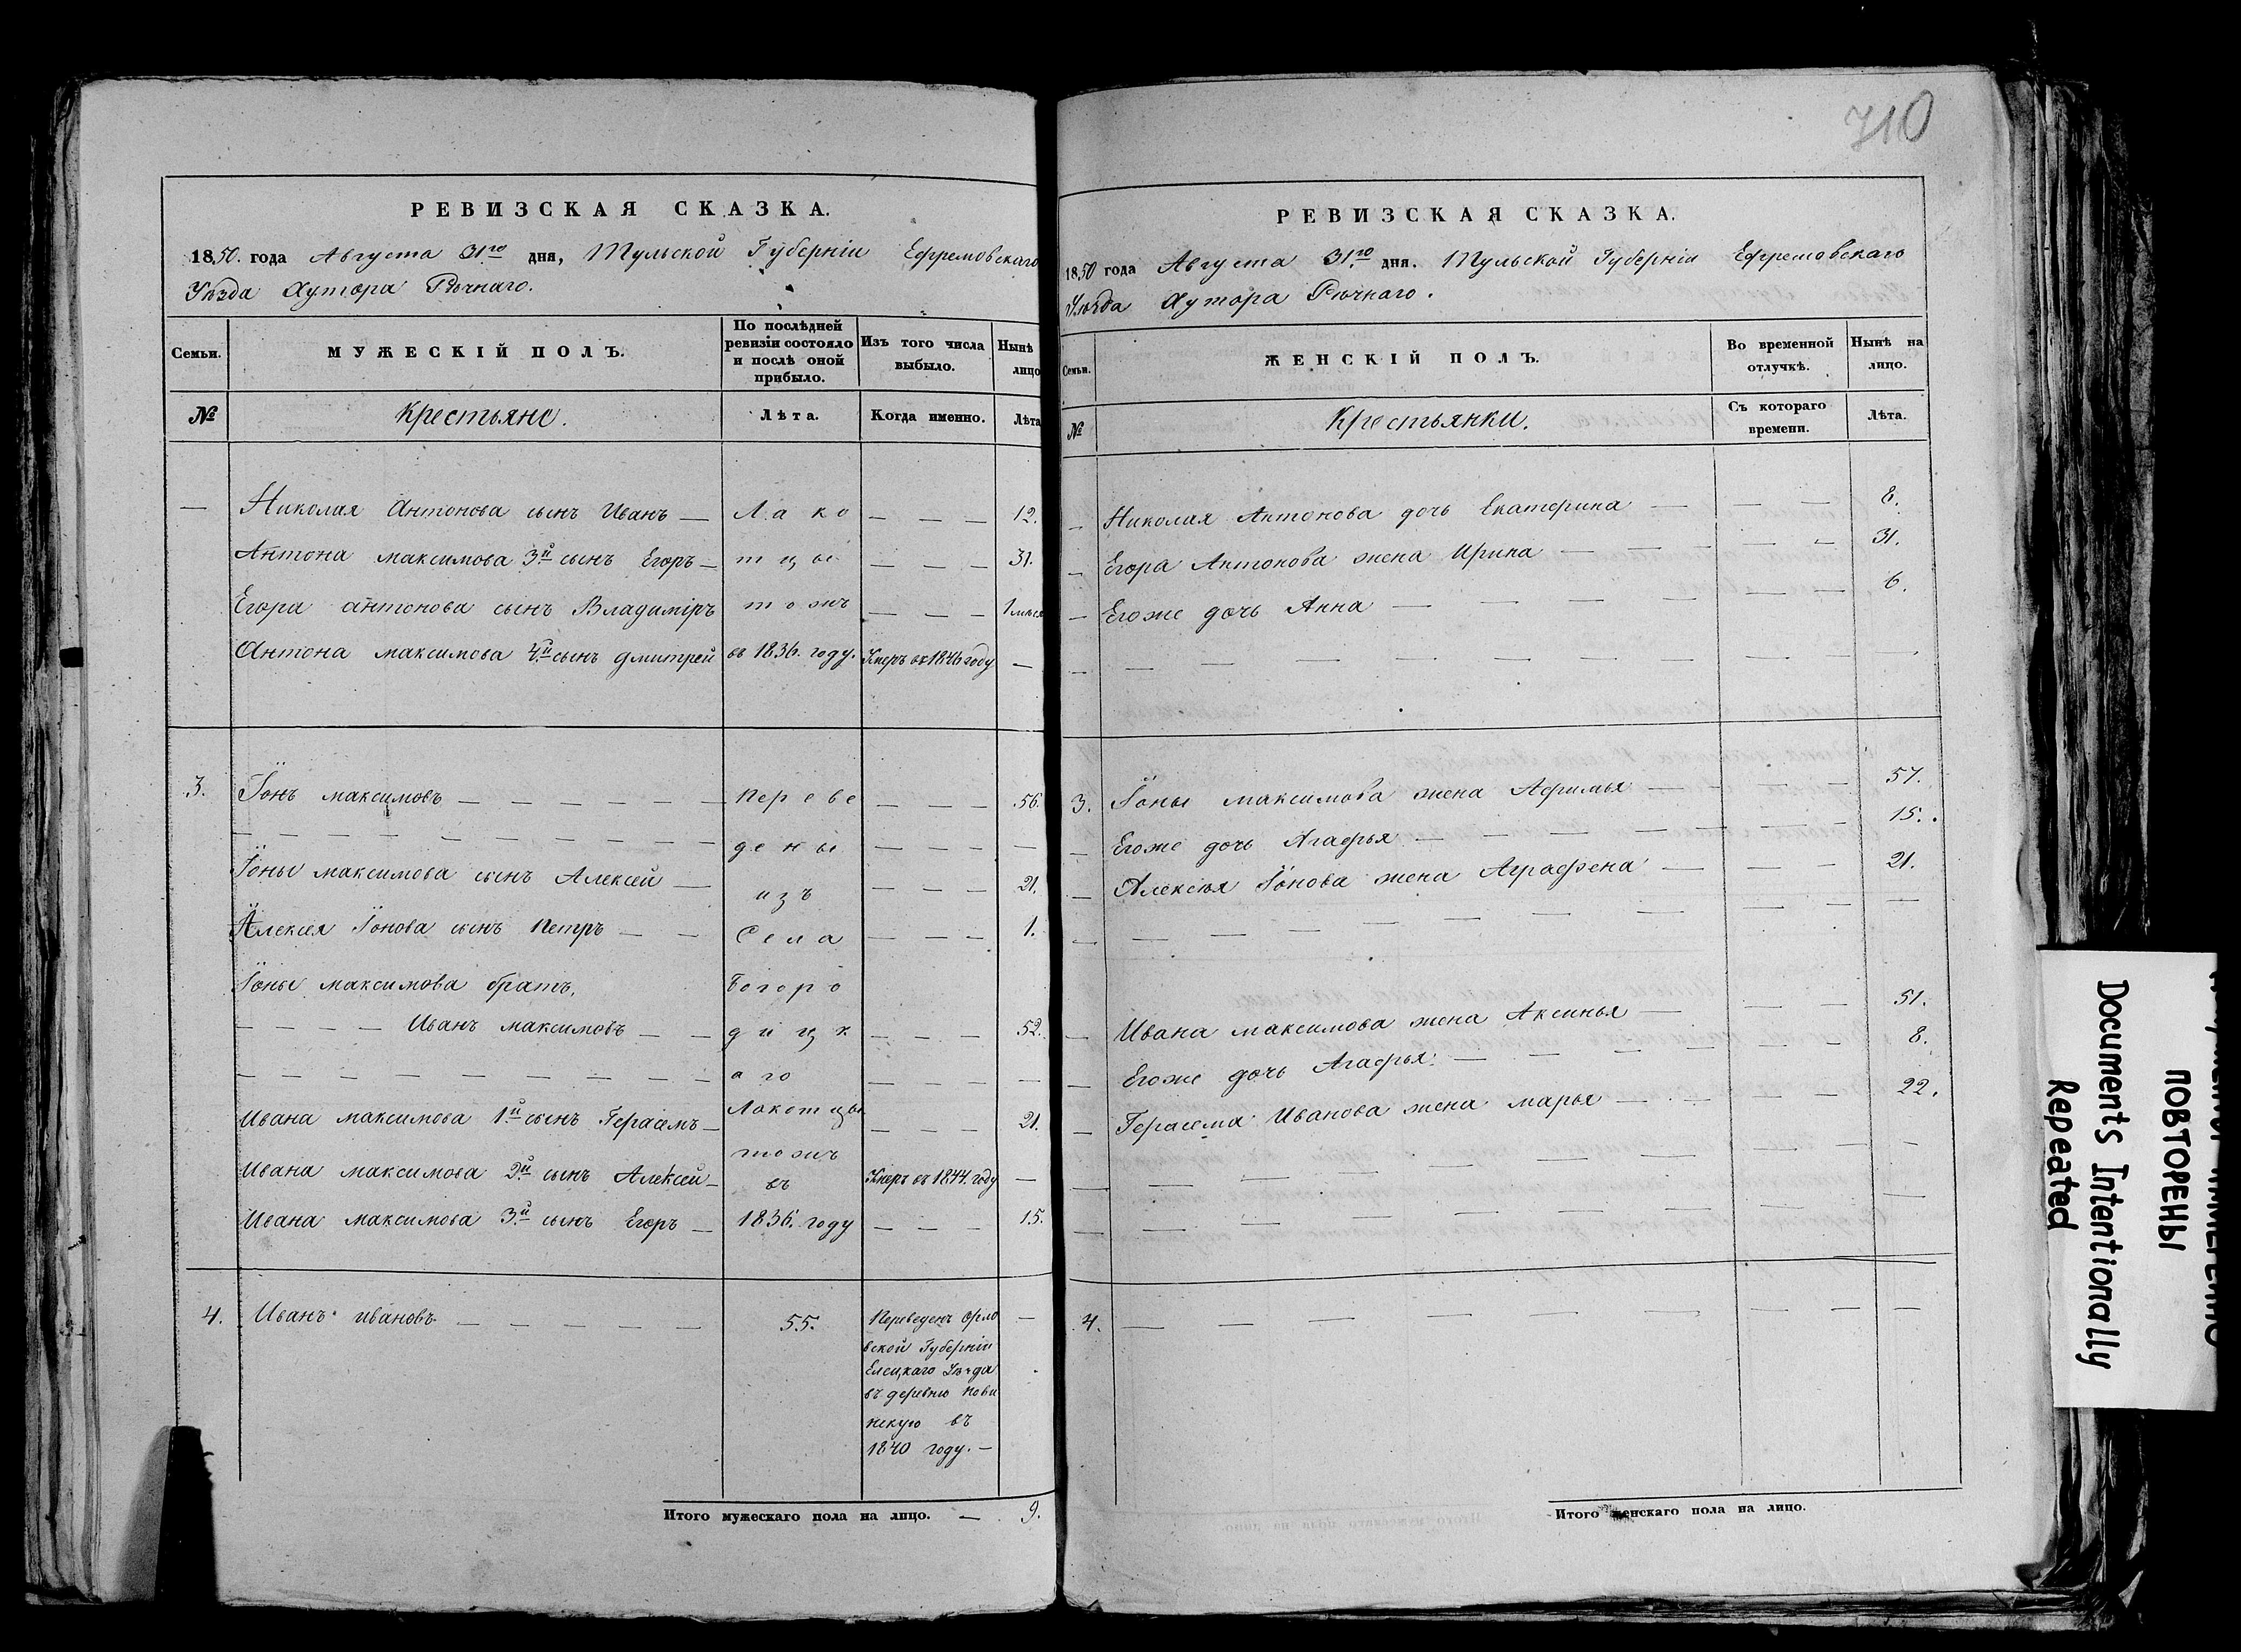 710
РЕВИЗСКАЯ СКАЗКА.
1850. года Августа 31го дня, Тульской Губерніи Ефремовскаго
Уѣзда Хутора Рѣчнаго.
Семьи.
МУЖЕСКІЙ ПОЛЪ.
По послѣдней ревизіи состояло и послѣ оной прибыло.
Изъ того числа выбыло.
Нынѣ лицо
№
Крестьяне.
Лѣта.
Когда именно.
Лѣта
— Николая Антонова сынъ Иванъ — Лако — — — 12.
Антона максимова 3й сынъ Егоръ — тцы — — — 31.
Егора антонова сынъ Владиміръ тожъ — — — 1 мѣся
Антона максимова 4й сынъ дмитрей въ 1836. году. Умеръ въ 1846 году —
3. Іонъ максимовъ — — — — — — Переве — — — 56.
— — — — — — — — — — дены — — — —
Іоны максимова сынъ Алексей — изъ — — — 21.
Алексея Іонова сынъ Петръ — — Села — — — 1.
Іоны максимова братъ, Богоро
— — — — Иванъ максимовъ — — дицк — — — 52.
— — — — — — — — — аго — — — —
Ивана максимова 1й сынъ Герасемъ — Локотцы — — — 21.
тожъ
Ивана максимова 2й сынъ Алексей — въ Умеръ въ 1844. году —
Ивана максимова 3й сынъ Егоръ — 1836. году — — — 15.
4. Иванъ ивановъ — — — — — — 55. Переведенъ Орло —
вской Губерніи
Елецкаго Уѣзда
въ деревню нови
нскую въ
1840 году. —
Итого мужескаго пола на лицо. — 9.
РЕВИЗСКАЯ СКАЗКА.
1850 года Августа 31.го дня. Тульской Губерніи Ефремовскаго
Уѣзда Хутора Рѣчнаго.
Семьи.
ЖЕНСКІЙ ПОЛЪ.
Во временной отлучкѣ.
Нынѣ на лицо.
№
Крестьянки.
Съ котораго времени.
Лѣта.
— Николая Антонова дочь Екатерина — — — — 8.
— Егора Антонова жена Ирина — — — — — — 31.
— Егоже дочь Анна — — — — — — — 6.
— — — — — — — — — — —
3. Іоны максимова жена Афимья — — — — — 57.
— Егоже дочь Агафья — — — — — — — 15.
— Алексѣя Іонова жена Аграфена — — — — 21.
— — — — — — — — — — —
— Ивана максимова жена Аксинья — — — 51.
— Егоже дочь Агафья. — — — — — — — 8.
— Герасема Иванова жена марья — — — — — 22.
— — — — — — — — — —
— — — — — — — — — —
4. — — — — — — — — —
Итого женскаго пола на лицо.
ПОВТОРЕНЫ
Documents Intentionally
Repeated